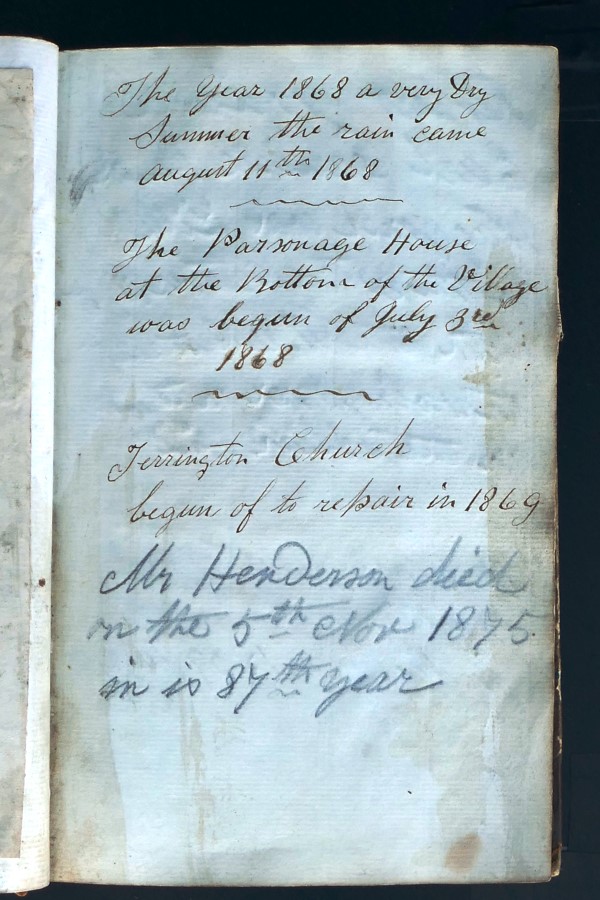 The Year 1868 a very Dry
Summer the rain came
august 11th 1868
The Parsonage House
at the Bottom of the Village
was begun of July 3rd
1868
Terrington Church
begun of to repair in 1869
Mr Henderson died
on the 5th Nov 1875
in is 87th year